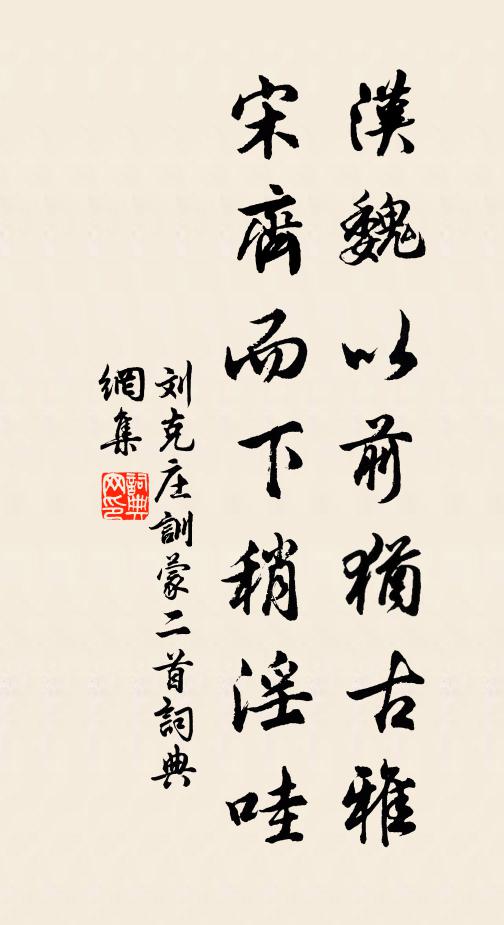 漢魏以前猶古雅
宋齊而下稍淫哇
刘克庄訓蒙二首詞典
網集
詞典網印